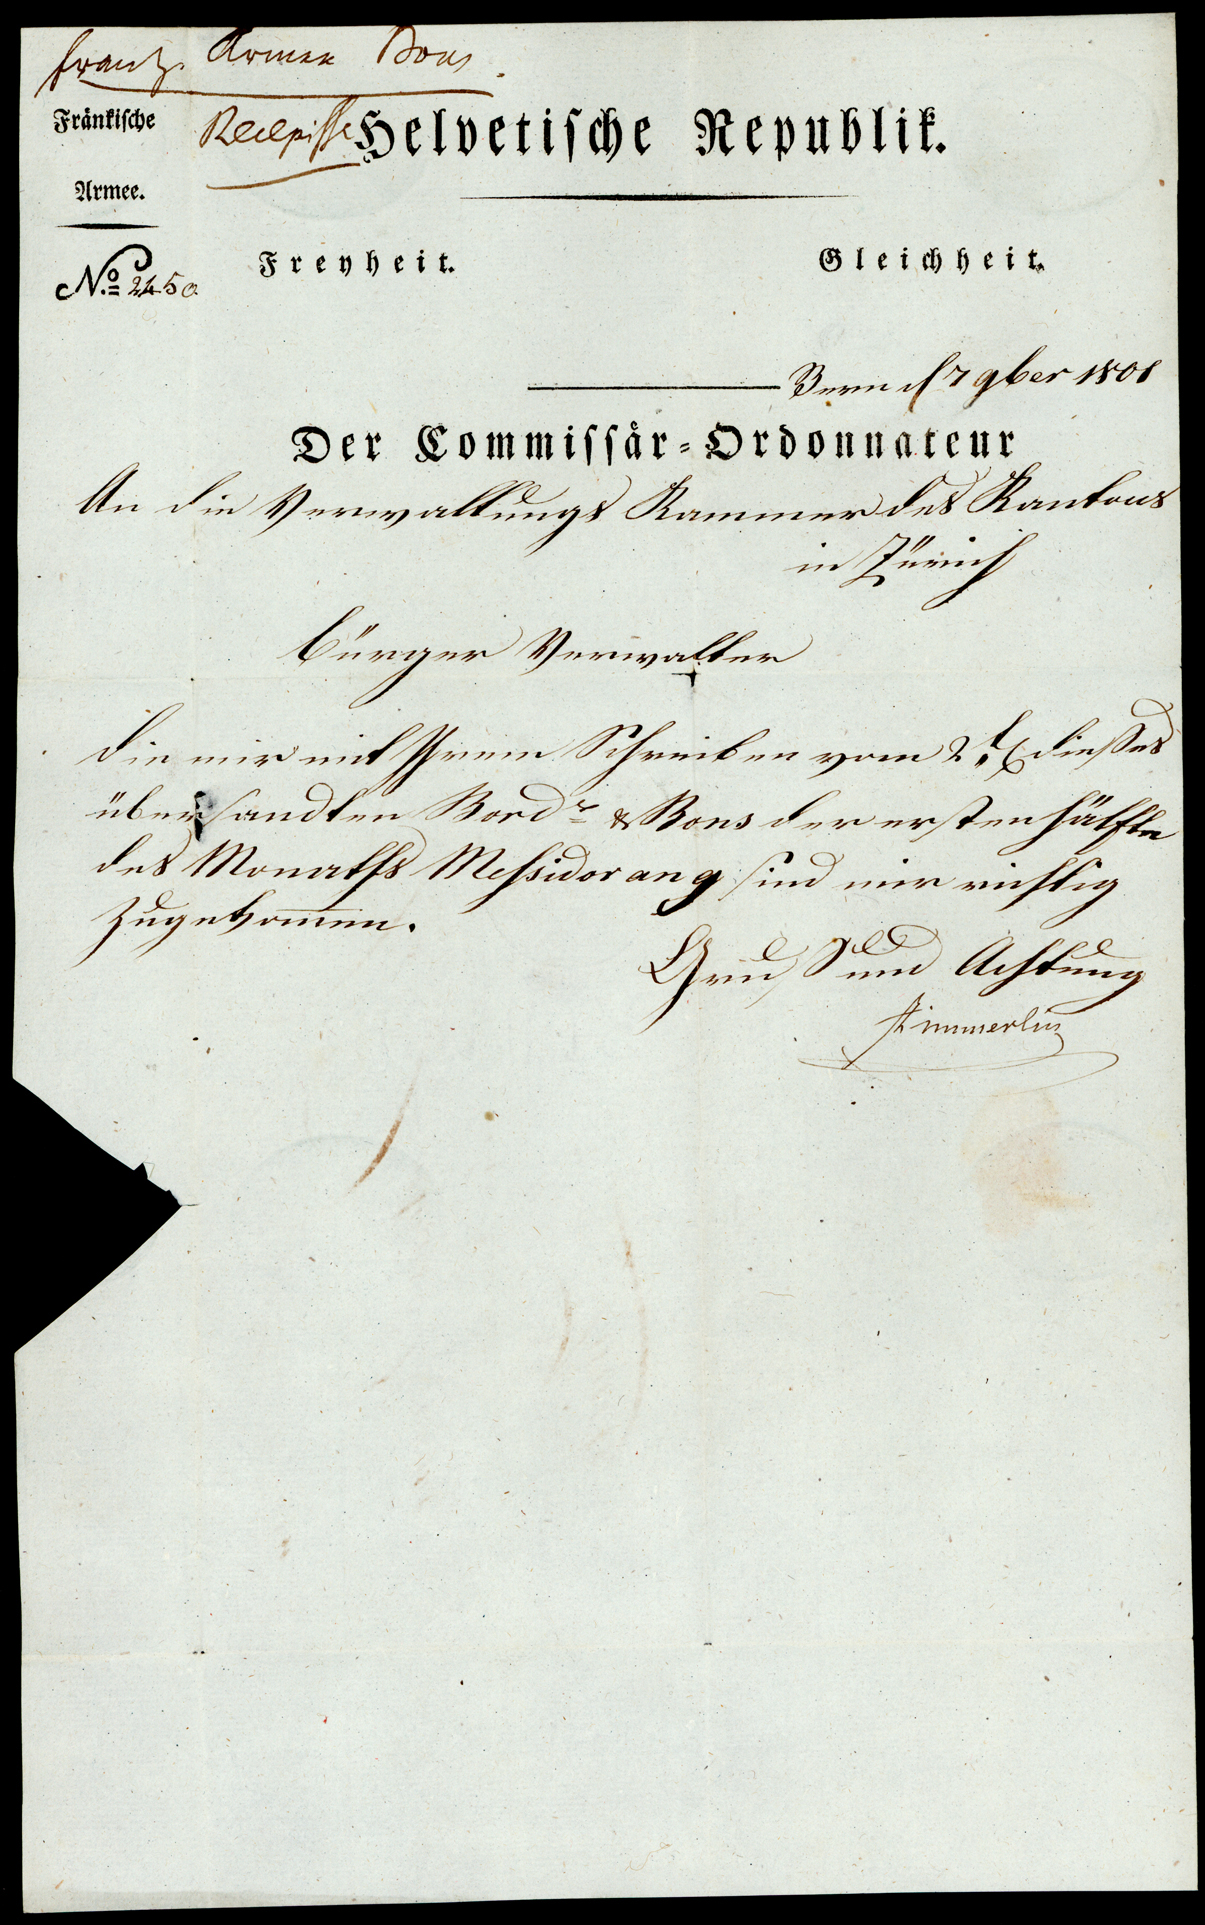 frantz. Armee Bons.
Recepisse
Fränkische
Armee.
Helvetische Republik.
No. 2450
Freyheit. Gleichheit.
Bern d 7 9ber 1801
Der Commissär-Ordonnateur
An die Verwaltungs Kammer des Kantons
in Zürich
Bürger Verwalter
Die mir mit Ihrem Schreiben vom 2t dieses
übersandten Bordr. & Bons der ersten hälfte
des Monaths Messidor an 9 sind mir richtig
zugekom̅en.
Gruß und Achtung
Zimmerlin